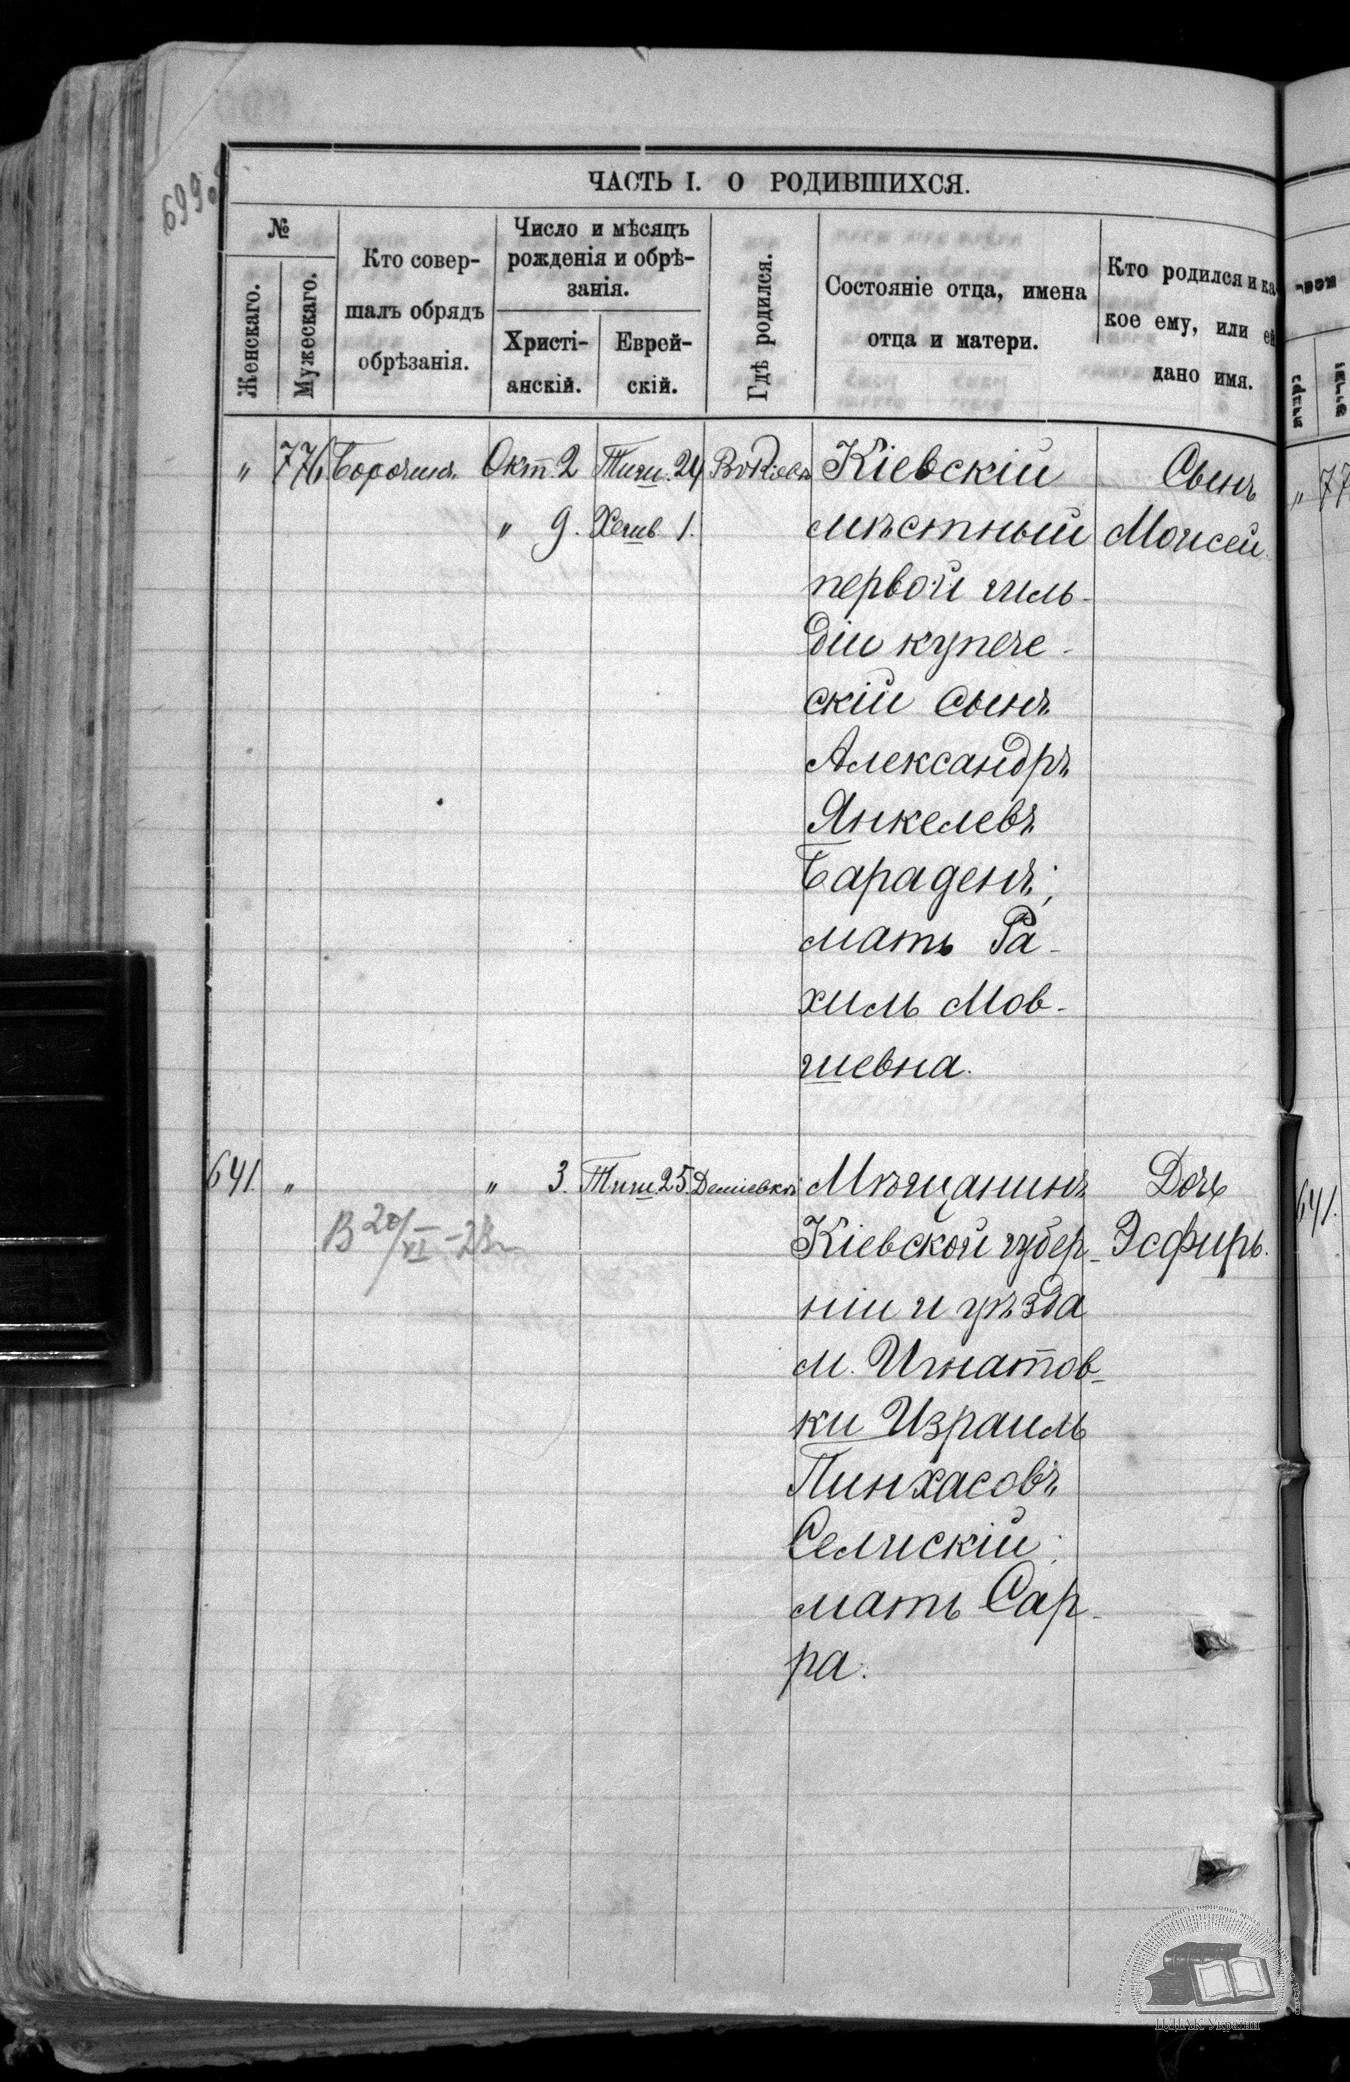 699 об
ЧАСТЬ I. О РОДИВШИХСЯ.
№
Женскаго.
Мужескаго.
Кто совер-
шалъ обрядъ
обрѣзанія.
Число и мѣсяцъ
рожденія и обрѣ-
занія.
Христі-
анскій.
Еврей-
скій.
Гдѣ родился.
Состояніе отца, имена
отца и матери.
Кто родился и ка
кое ему, или ей
дано имя.
„ 776. Борочинъ. Окт. 2 Тиш. 24 Въ Кіевѣ Кіевскій Сынъ
„ 9. Хешв. 1. мѣстный Моисей.
первой гиль-
діи купече-
скій сынъ
Александръ
Янкелевъ
Бараденъ;
мать Ра-
хиль Мов-
шевна.
641. „ „ 3. Тиш. 25. Деміевкѣ Мѣщанинъ Дочь
В 20/VI-28 г. Кіевской губер- Эсфирь.
ніи и уѣзда
м. Игнатов-
ки Израиль
Пинхасовъ
Селискій;
мать Сар-
ра.
„ 77
641.
ЦДІАК України